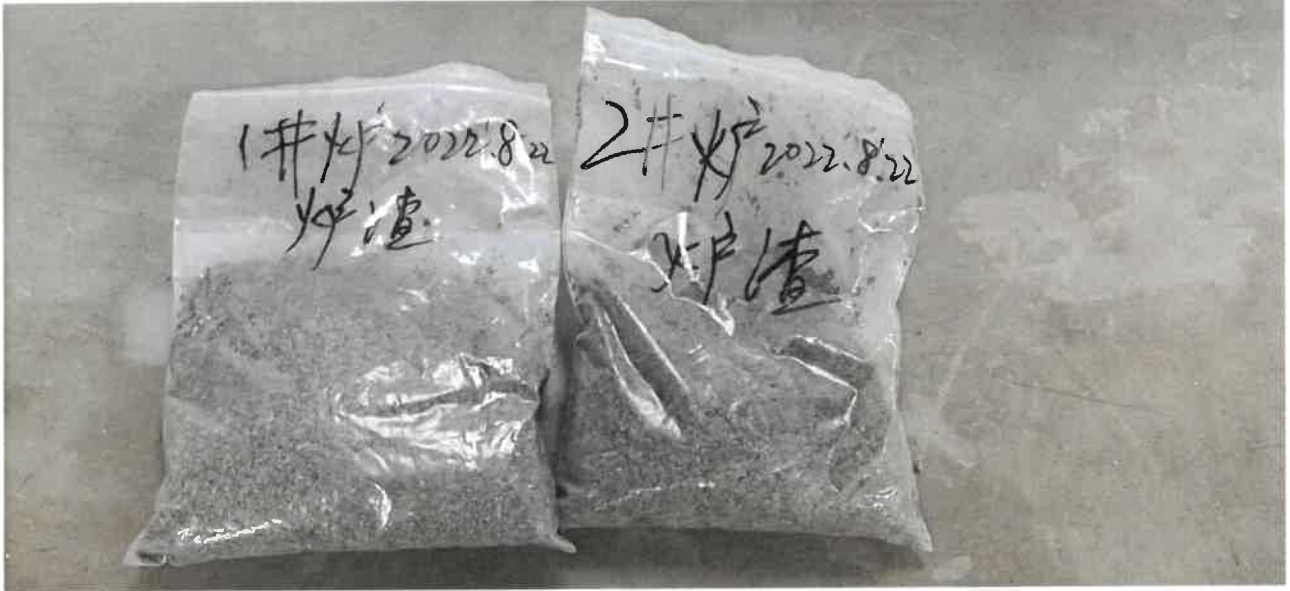 1#炉2022.8.22
炉渣
2#炉2022.8.22
炉渣